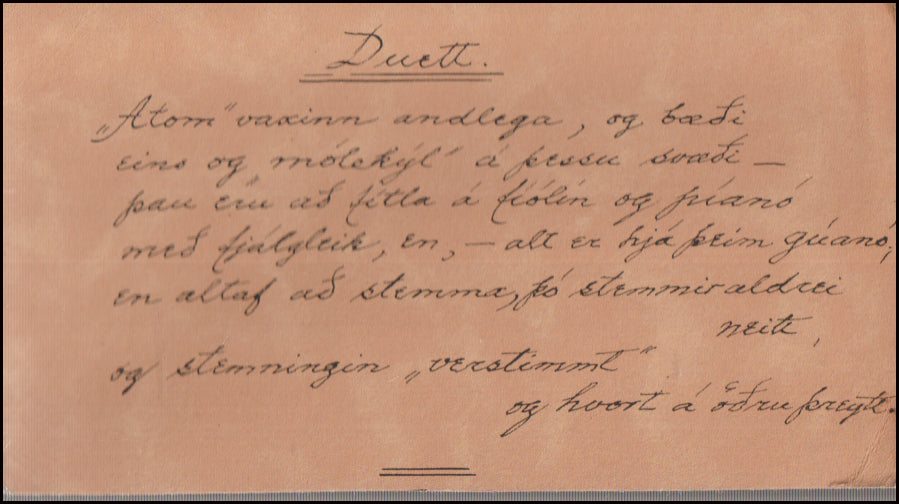 Duett.
„Atom“ vaxinn andlega, og bæði
eins og mólekýl' á þessu svæði –
þau eru að fitla á fíólín og píanó
með fjálgleik, en, – alt er hjá þeim gúanó;
en altaf að stemma, þó stemmir aldrei
neitt,
og stemningin „verstimmt“
og hvort á öðru þreytt.